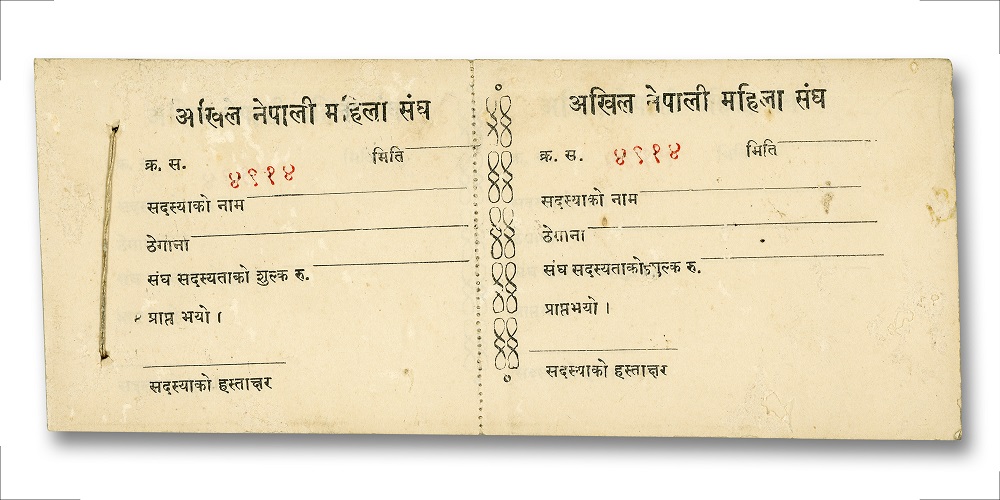 अखिल नेपाली महिला संघ
क्र. स. ४९१४ मिति
सदस्याको नाम
ठेगाना
संघ सदस्यताको शुल्क रु.
प्राप्त भयो ।
सदस्याको हस्ताक्षर
अखिल नेपाली महिला संघ
क्र. स. ४९१४ मिति
सदस्याको नाम
ठेगाना
संघ सदस्यताको शुल्क रु.
प्राप्तभयो ।
सदस्याको हस्ताक्षर